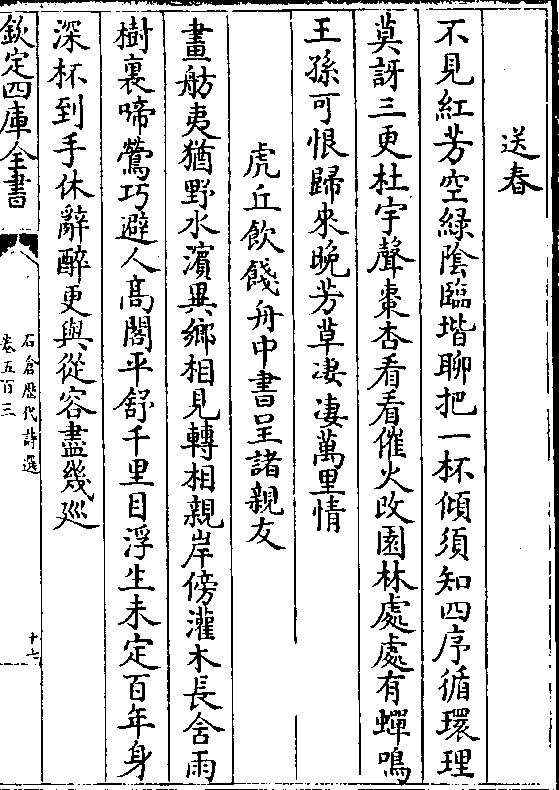 送春
不見紅芳空綠陰臨堦聊把一杯傾須知四序循環理
莫訝三更杜宇聲棗杏看看催火改園林處處有蟬鳴
王孫可恨歸來晚芳草凄凄萬里情
虎丘飲餞舟中書呈諸親友
畫舫夷猶野水濵異鄉相見轉相親岸傍灌木長含雨
樹裏啼鶯巧避人髙閣平舒千里目浮生未定百年身
深杯到手休辭醉更與從容盡幾廵
欽定四庫全書
石倉歴代詩選
卷五百三
十七